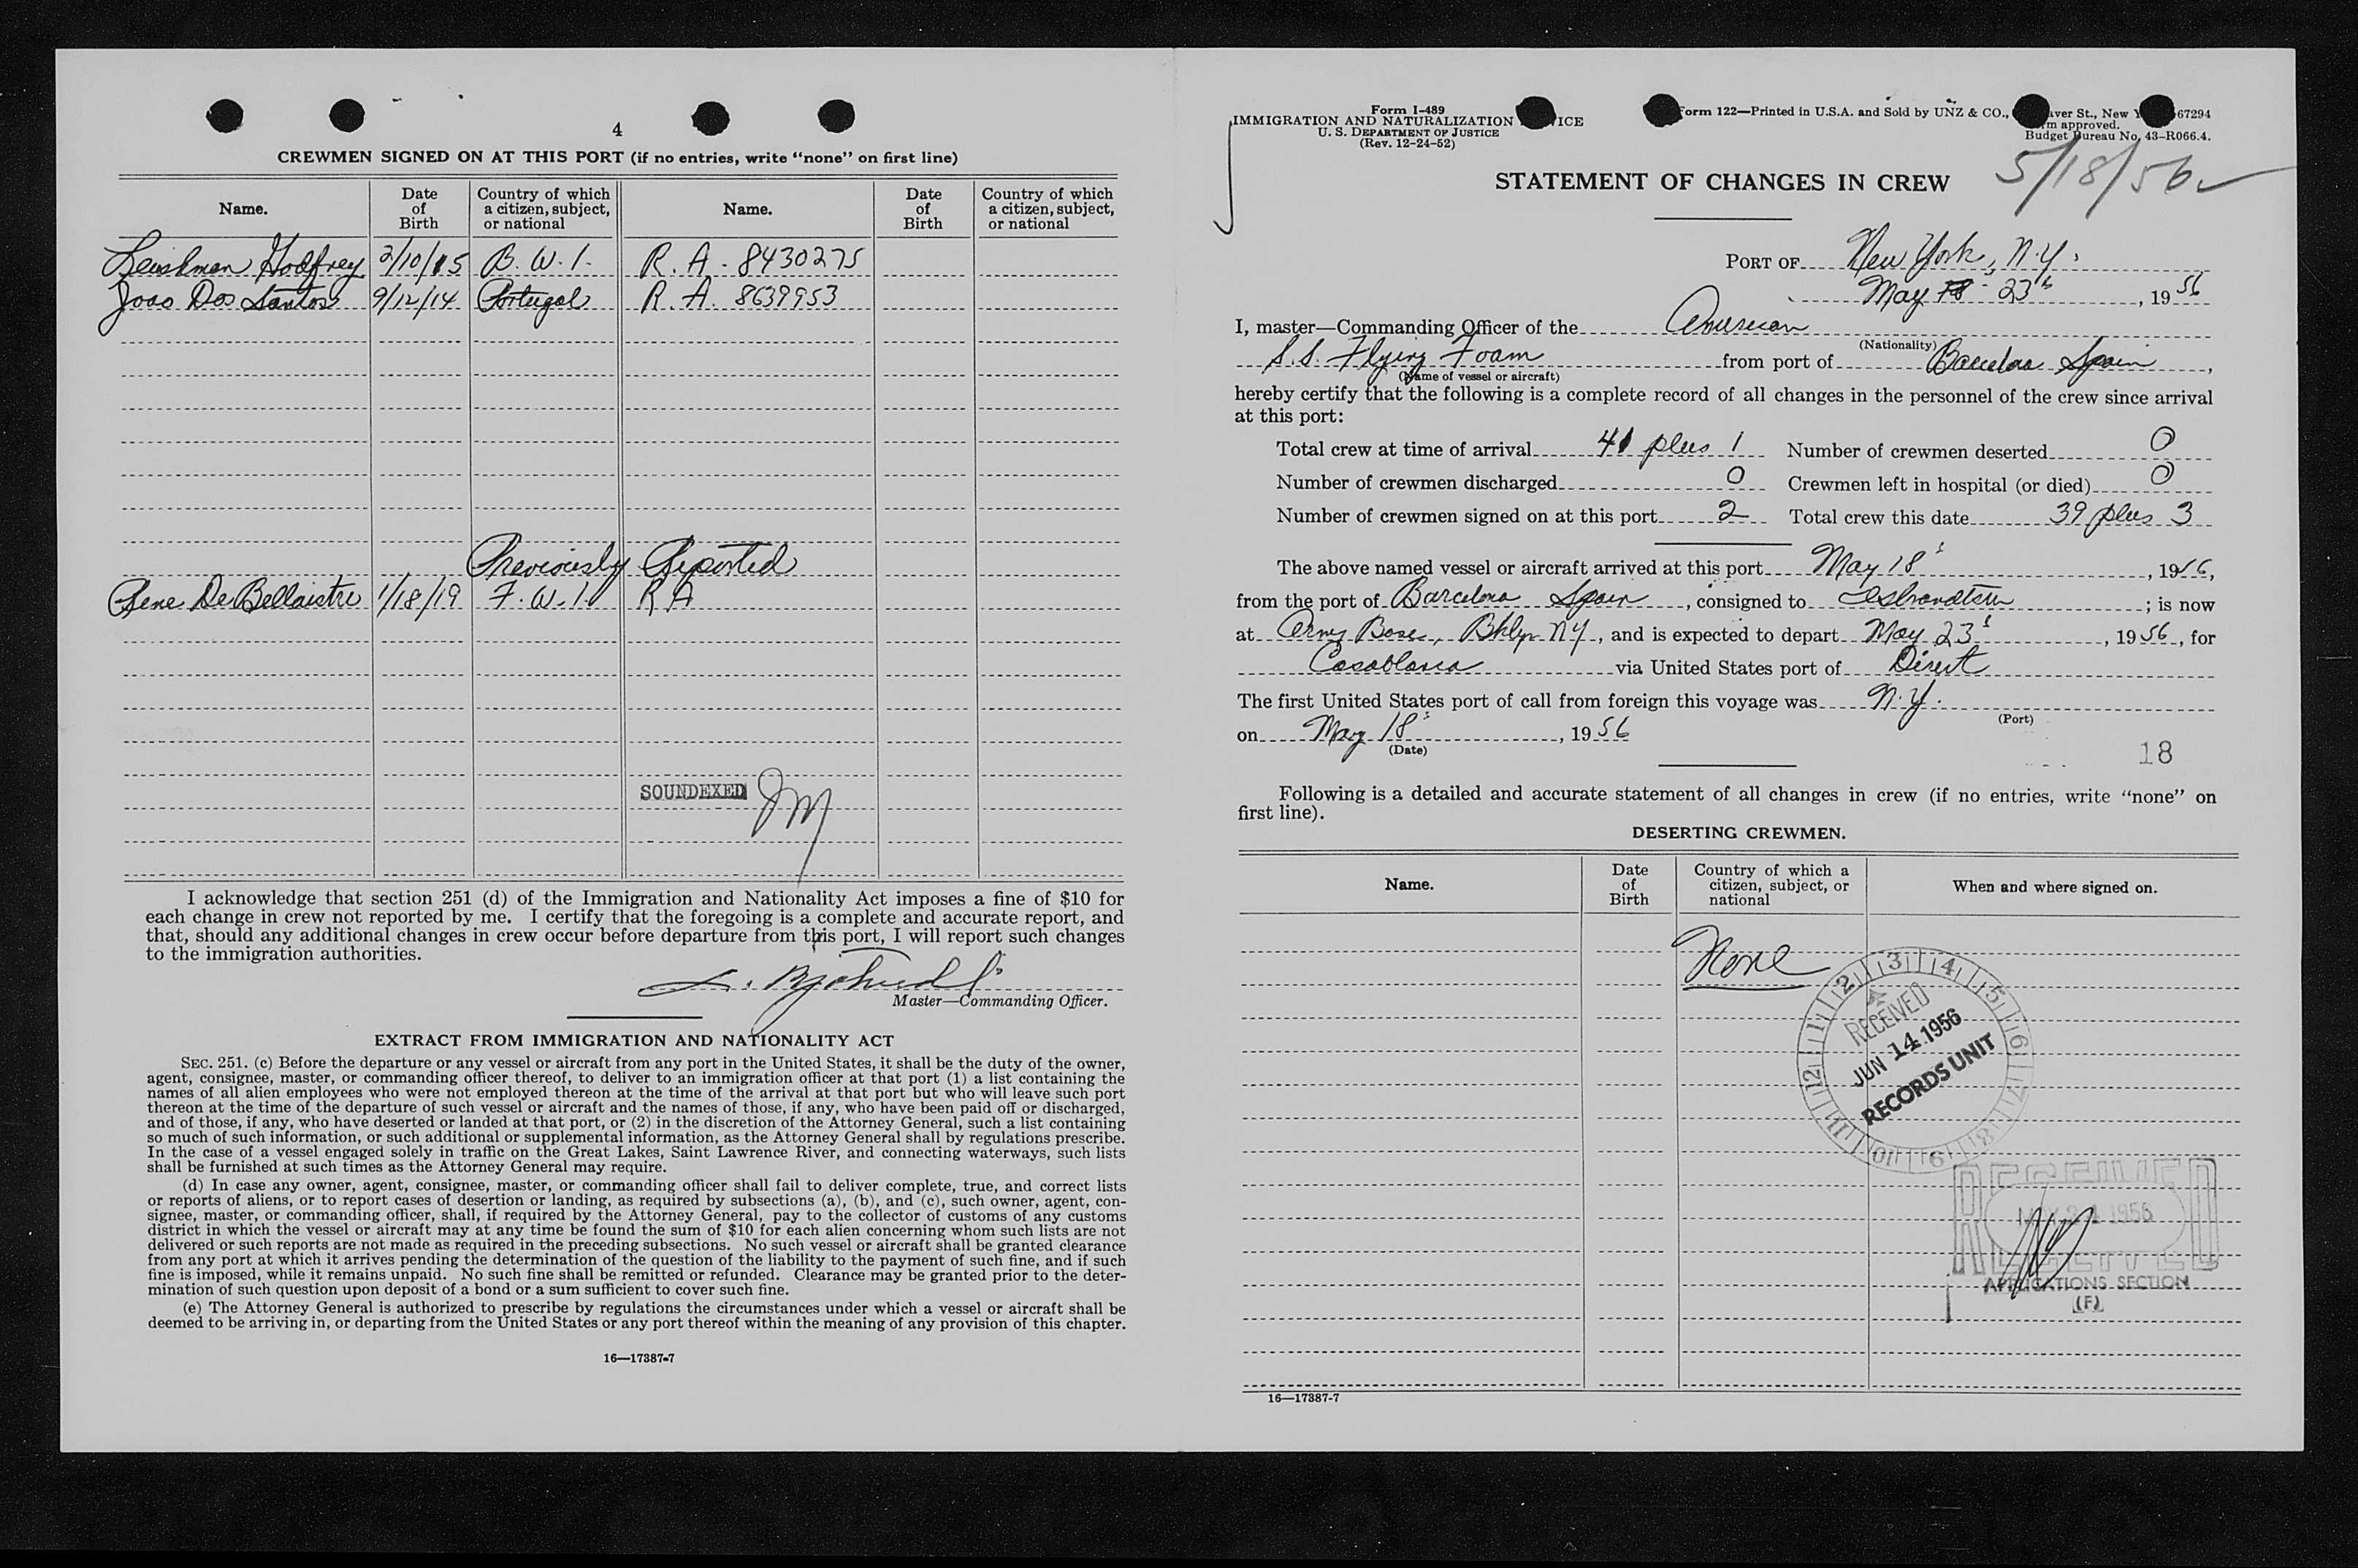 4
CREWMEN SIGNED ON AT THIS PORT (if no entries, write “none” on first line)
Name. Date of Birth Country of which a citizen, subject, or national Name. Date of Birth Country of which a citizen, subject, or national
Leishman Godfrey 2/10/15 B. W. I. R. A. - 8430275
Joao Dos Santos 9/12/14 Portugal R. A. 8639953
Previously Reported
Rene De Bellaistre 1/18/19 F. W. I. R A
SOUNDEXED
I acknowledge that section 251 (d) of the Immigration and Nationality Act imposes a fine of $10 for
each change in crew not reported by me. I certify that the foregoing is a complete and accurate report, and
that, should any additional changes in crew occur before departure from this port, I will report such changes
to the immigration authorities.
Master—Commanding Officer.
EXTRACT FROM IMMIGRATION AND NATIONALITY ACT
SEC. 251. (c) Before the departure or any vessel or aircraft from any port in the United States, it shall be the duty of the owner,
agent, consignee, master, or commanding officer thereof, to deliver to an immigration officer at that port (1) a list containing the
names of all alien employees who were not employed thereon at the time of the arrival at that port but who will leave such port
thereon at the time of the departure of such vessel or aircraft and the names of those, if any, who have been paid off or discharged,
and of those, if any, who have deserted or landed at that port, or (2) in the discretion of the Attorney General, such a list containing
so much of such information, or such additional or supplemental information, as the Attorney General shall by regulations prescribe.
In the case of a vessel engaged solely in traffic on the Great Lakes, Saint Lawrence River, and connecting waterways, such lists
shall be furnished at such times as the Attorney General may require.
(d) In case any owner, agent, consignee, master, or commanding officer shall fail to deliver complete, true, and correct lists
or reports of aliens, or to report cases of desertion or landing, as required by subsections (a), (b), and (c), such owner, agent, con-
signee, master, or commanding officer, shall, if required by the Attorney General, pay to the collector of customs of any customs
district in which the vessel or aircraft may at any time be found the sum of $10 for each alien concerning whom such lists are not
delivered or such reports are not made as required in the preceding subsections. No such vessel or aircraft shall be granted clearance
from any port at which it arrives pending the determination of the question of the liability to the payment of such fine, and if such
fine is imposed, while it remains unpaid. No such fine shall be remitted or refunded. Clearance may be granted prior to the deter-
mination of such question upon deposit of a bond or a sum sufficient to cover such fine.
(e) The Attorney General is authorized to prescribe by regulations the circumstances under which a vessel or aircraft shall be
deemed to be arriving in, or departing from the United States or any port thereof within the meaning of any provision of this chapter.
16—17387-7
Form I-489
IMMIGRATION AND NATURALIZATION ICE
U. S. DEPARTMENT OF JUSTICE
(Rev. 12-24-52)
orm 122—Printed in U.S.A. and Sold by UNZ & CO., aver St., New Y 67294
m approved.
Budget Bureau No. 43-R066.4.
5/18/56
STATEMENT OF CHANGES IN CREW
PORT OF New York, N.Y.
May 23, 1956
I, master—Commanding Officer of the American
(Nationality)
S.S. Flying Foam from port of Barcelona Spain,
(Name of vessel or aircraft)
hereby certify that the following is a complete record of all changes in the personnel of the crew since arrival
at this port:
Total crew at time of arrival 41 plus 1 Number of crewmen deserted 0
Number of crewmen discharged 0 Crewmen left in hospital (or died) 0
Number of crewmen signed on at this port 2 Total crew this date 39 plus 3
The above named vessel or aircraft arrived at this port May 18, 1956,
from the port of Barcelona Spain, consigned to Isbrandtsen; is now
at Army Base, Bklyn NY, and is expected to depart May 23, 1956, for
Casablanca via United States port of Direct
The first United States port of call from foreign this voyage was N.Y.
(Port)
on May 18, 1956
(Date)
18
Following is a detailed and accurate statement of all changes in crew (if no entries, write “none” on
first line).
DESERTING CREWMEN.
Name. Date of Birth Country of which a citizen, subject, or national When and where signed on.
None
1 2 3 4 5 6 7 8 9 10 11 12
RECEIVED
JUN 14 1956
RECORDS UNIT
RECEIVED
MAY 24 1956
RECEIVED
APPLICATIONS SECTION
(F)
16—17387-7